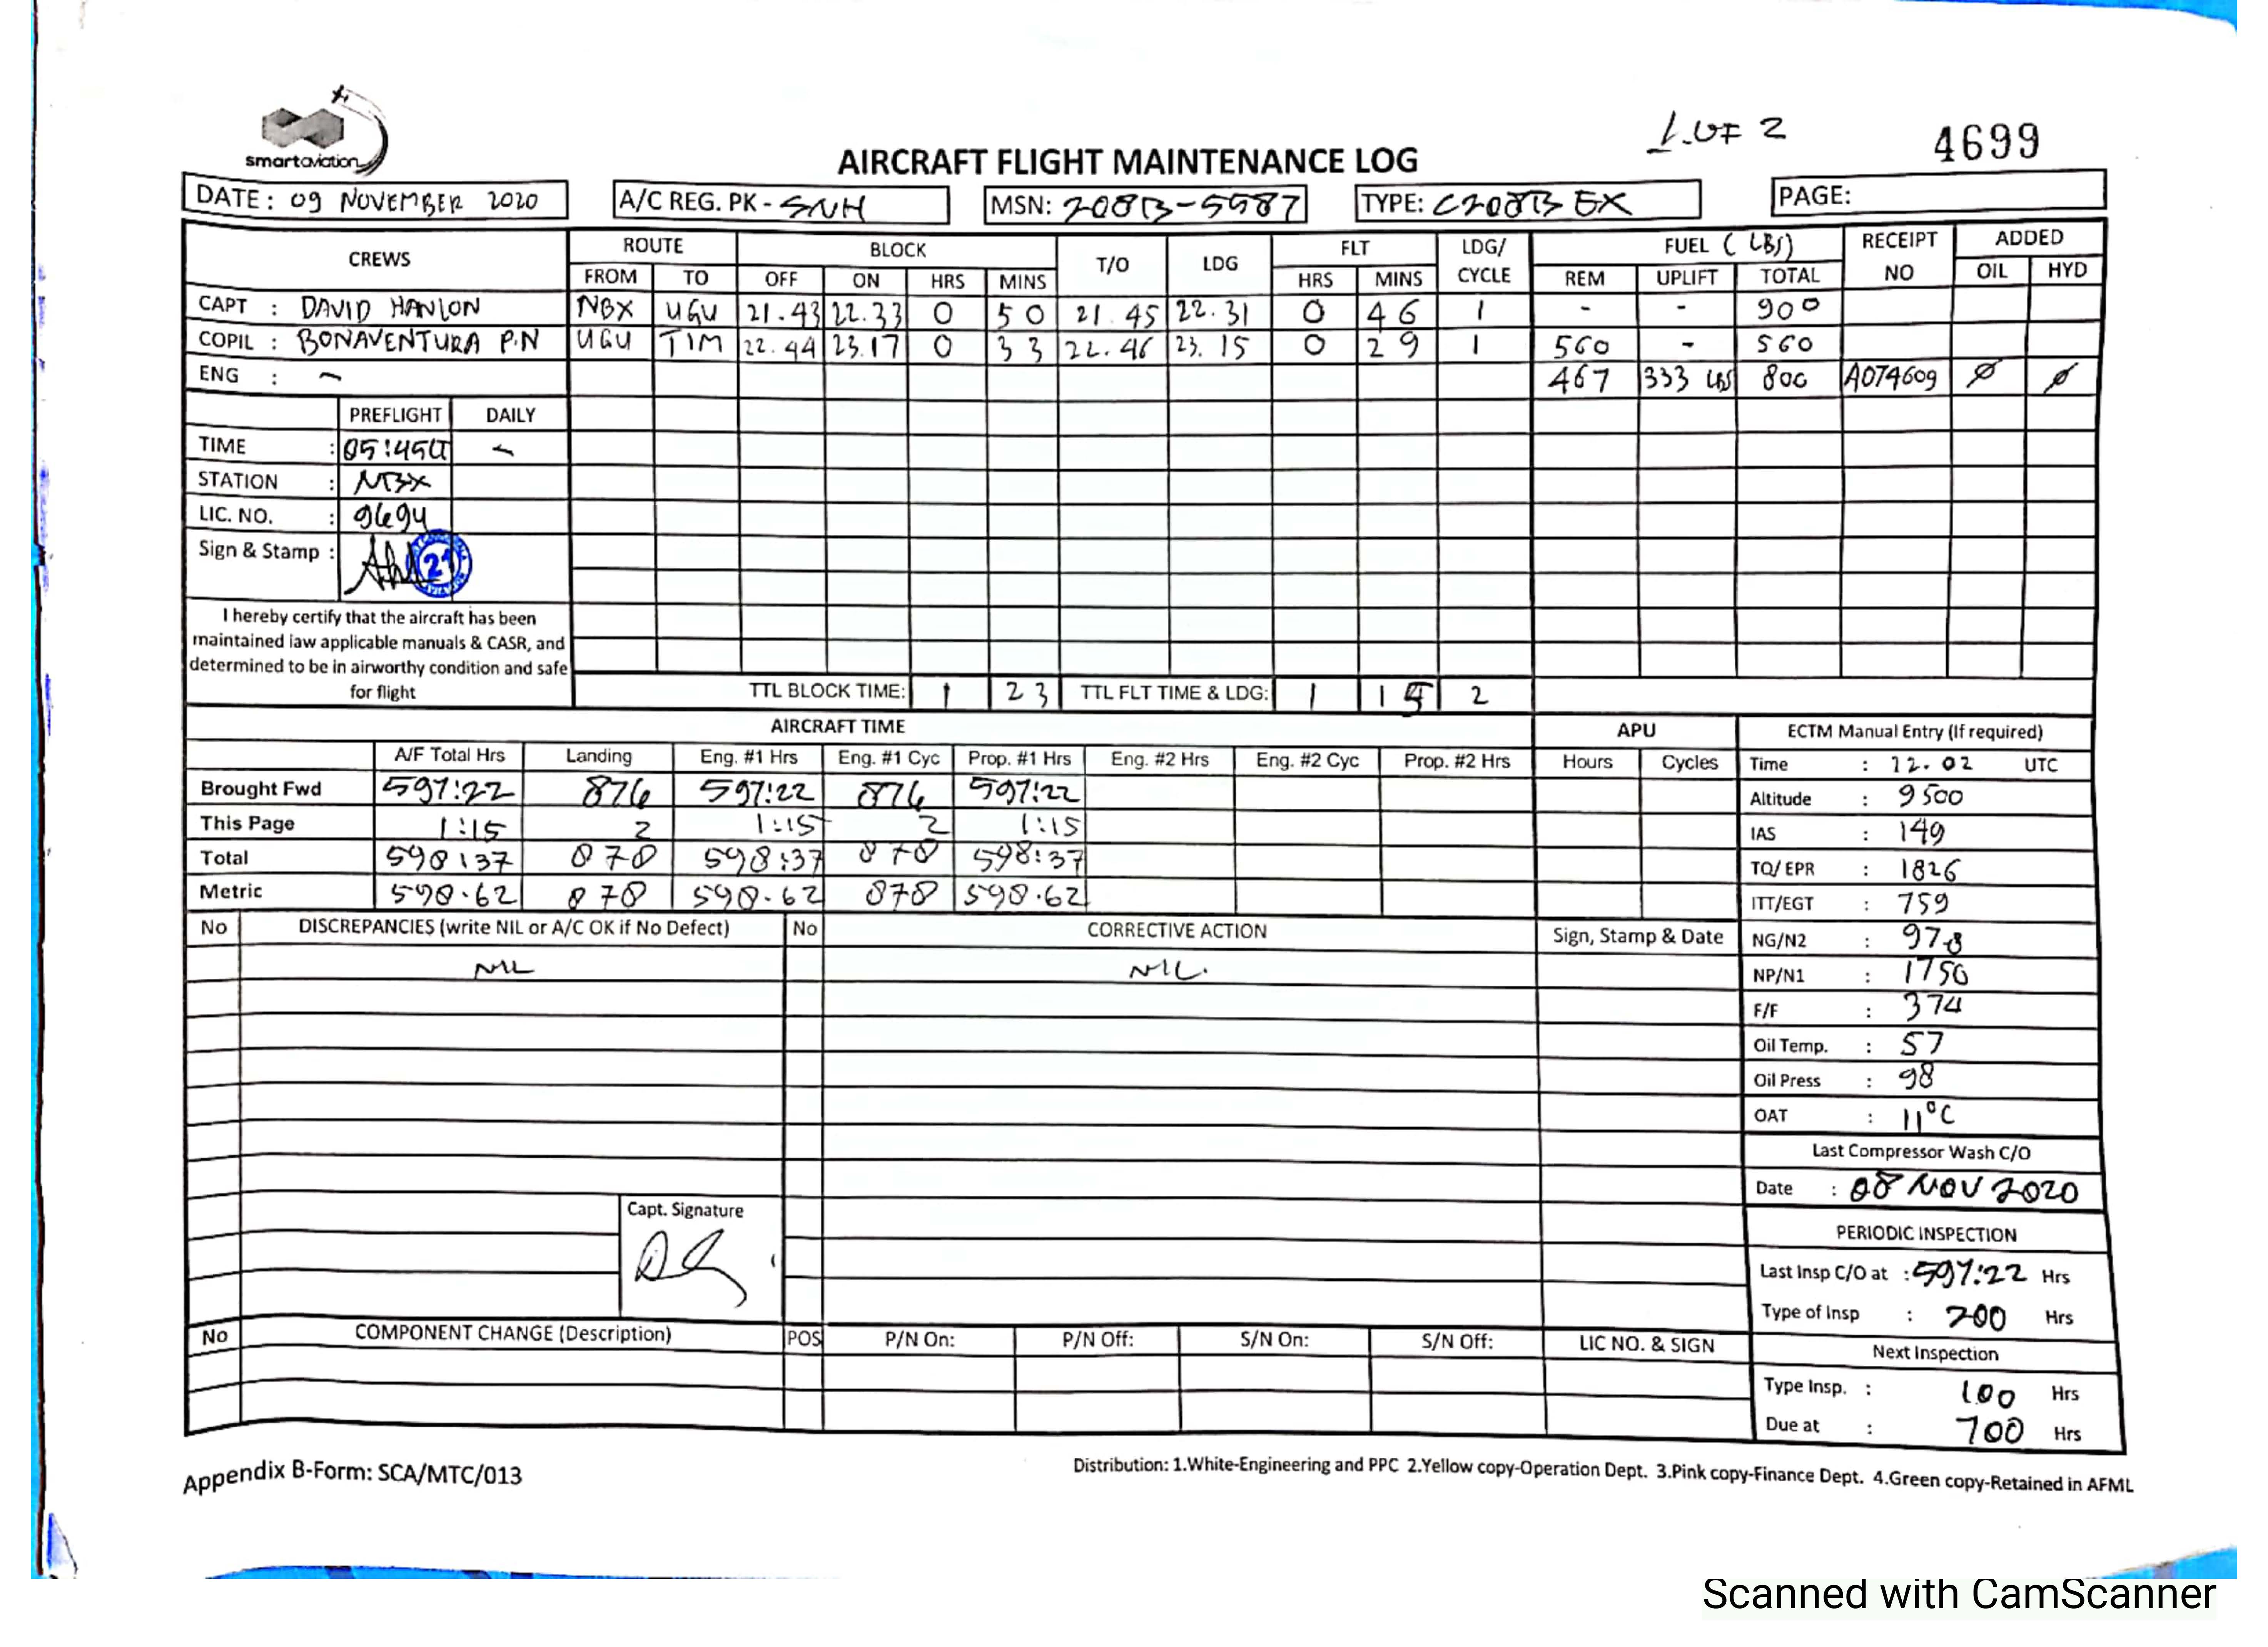 smartaviation
1 OF 2
4699
AIRCRAFT FLIGHT MAINTENANCE LOG
DATE: 09 NOVEMBER 2020 A/C REG. PK - SNH MSN: 208B-5587 TYPE: C208B EX PAGE:
CREWS ROUTE BLOCK T/O LDG FLT LDG/ CYCLE FUEL (LBS) RECEIPT NO ADDED
FROM TO OFF ON HRS MINS HRS MINS REM UPLIFT TOTAL OIL HYD
CAPT : DAVID HANLON NBX UGU 21.43 22.33 0 50 21.45 22.31 0 46 1 - - 900
COPIL : BONAVENTURA P.N UGU TIM 22.44 23.17 0 33 22.46 23.15 0 29 1 560 - 560
ENG : - 467 333 LBS 800 A074609 Ø Ø
PREFLIGHT DAILY
TIME : 05:45LT -
STATION : NBX
LIC. NO. : 9694
Sign & Stamp : 21
I hereby certify that the aircraft has been
maintained iaw applicable manuals & CASR, and
determined to be in airworthy condition and safe
for flight
TTL BLOCK TIME: 1 23 TTL FLT TIME & LDG: 1 15 2
AIRCRAFT TIME APU ECTM Manual Entry (If required)
A/F Total Hrs Landing Eng. #1 Hrs Eng. #1 Cyc Prop. #1 Hrs Eng. #2 Hrs Eng. #2 Cyc Prop. #2 Hrs Hours Cycles Time : 22.02 UTC
Brought Fwd 597:22 876 597:22 876 597:22 Altitude : 9500
This Page 1:15 2 1:15 2 1:15 IAS : 149
Total 598:37 878 598:37 878 598:37 TQ/ EPR : 1826
Metric 598.62 878 598.62 878 598.62 ITT/EGT : 759
No DISCREPANCIES (write NIL or A/C OK if No Defect) No CORRECTIVE ACTION Sign, Stamp & Date NG/N2 : 97.8
NIL NIL. NP/N1 : 1750
F/F : 374
Oil Temp. : 57
Oil Press : 98
OAT : 11°C
Last Compressor Wash C/O
Date : 08 NOV 2020
Capt. Signature
PERIODIC INSPECTION
Last Insp C/O at : 597:22 Hrs
Type of Insp : 200 Hrs
No COMPONENT CHANGE (Description) POS P/N On: P/N Off: S/N On: S/N Off: LIC NO. & SIGN Next Inspection
Type Insp. : 100 Hrs
Due at : 700 Hrs
Appendix B-Form: SCA/MTC/013
Distribution: 1.White-Engineering and PPC 2.Yellow copy-Operation Dept. 3.Pink copy-Finance Dept. 4.Green copy-Retained in AFML
Scanned with CamScanner